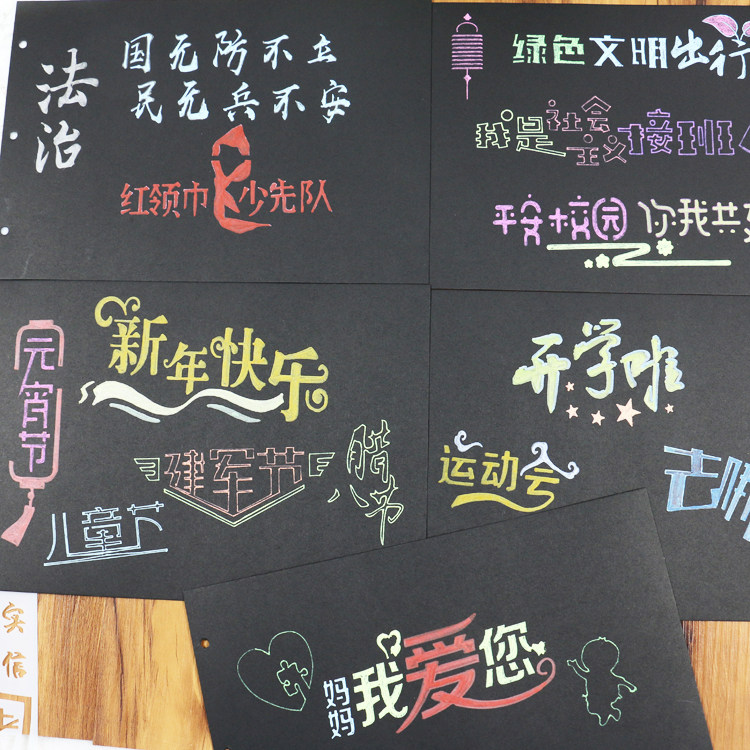 法治
国无防不立
民无兵不安
红领巾 少先队
绿色文明出行
我是社会主义接班
平安校园 你我共
元宵节
新年快乐
建军节
腊八节
儿童节
开学啦
运动会
去哪
妈妈我爱您
实
信